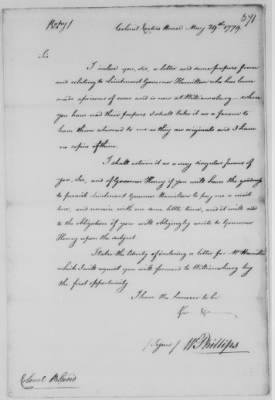 Copy/
571
Colonel Carters House May 29th 1779
Sir
I inclose you, Sir, a letter and some papers from
and relating to Lieutenant Governor Hamilton who has been
made a prisoner of war and is now at Williamsburg - when
you have read these papers I shall take it as a favour to
have them returned to me as they are originals and I have
no copies of them.
I shall esteem it as a very singular favour of
you, Sir, and of Governor Henry if you will have the goodness
to permit Lieutenant Governor Hamilton to pay me a visit
here, and remain with me some little time, and it will add
to the obligation if you will obligingly write to Governor
Henry upon the subject.
I take the liberty of inclosing a letter for Mr Hamilton
which I will request you will forward to Williamsburg by
the first opportunity
I have the honour to be
(Signed) W. Phillips
Colonel Bland